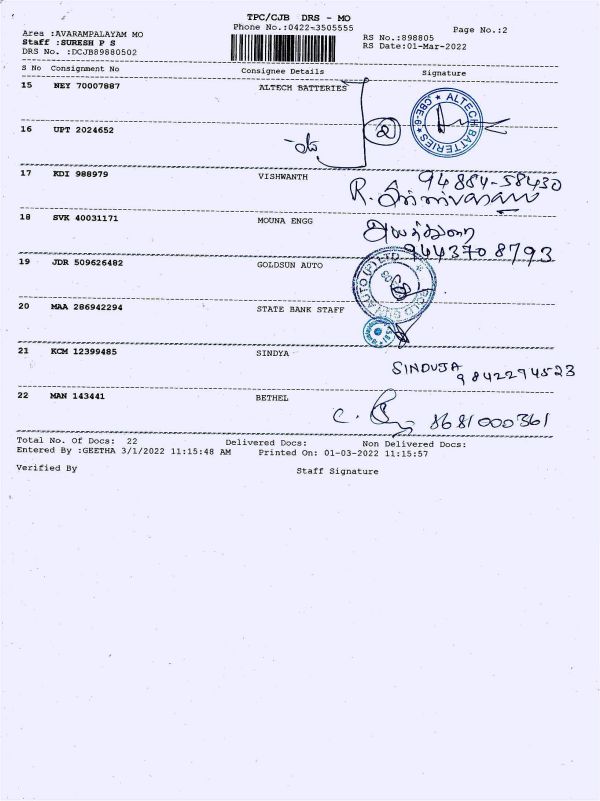 TPC/CJB DRS - MO
Area :AVARAMPALAYAM MO Phone No.:0422-3505555 Page No.:2
Staff :SURESH P S RS No.:898805
DRS No. :DCJB89880502 RS Date:01-Mar-2022
S No Consignment No Consignee Details Signature
15 NEY 70007887 ALTECH BATTERIES
ALTECH BATTERIES CBE-6
16 UPT 2024652
2
17 KDI 988979 VISHWANTH 94884-58430
R.
18 SVK 40031171 MOUNA ENGG
9443708793
19 JDR 509626482 GOLDSUN AUTO
GOLD SUN AUTO (P) LTD
20 MAA 286942294 STATE BANK STAFF
21 KCM 12399485 SINDYA
SINDUJA 9842294523
22 MAN 143441 BETHEL
C. 8681000361
Total No. Of Docs: 22 Delivered Docs: Non Delivered Docs:
Entered By :GEETHA 3/1/2022 11:15:48 AM Printed On: 01-03-2022 11:15:57
Verified By Staff Signature